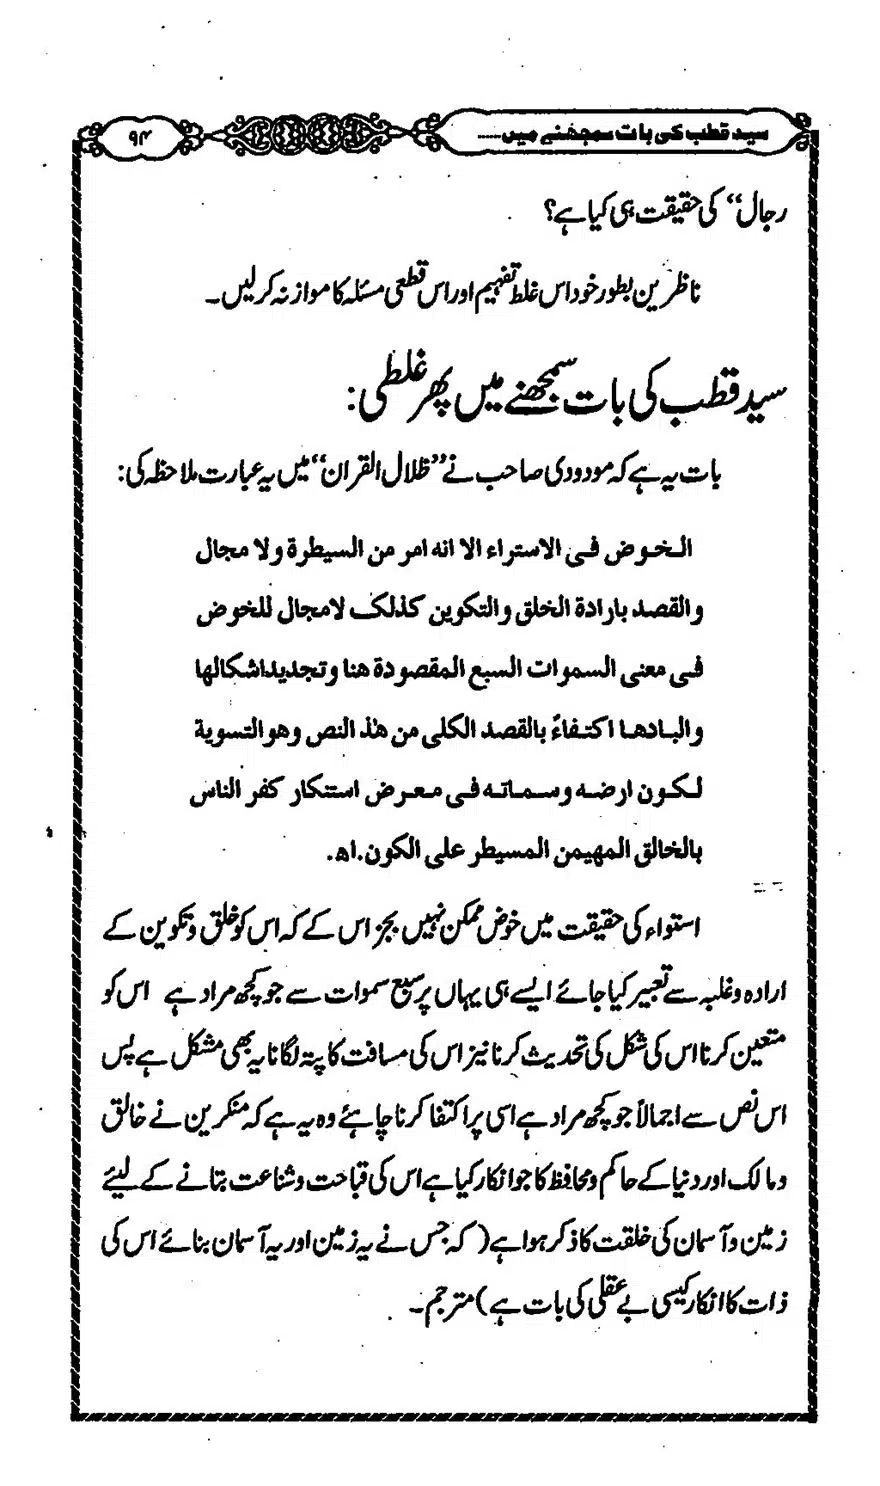 سید قطب کی بات سمجھنے میں......
۹۴
رجال‘‘ کی حقیقت ہی کیا ہے؟
ناظرین بطور خود اس غلط تفہیم اور اس قطعی مسئلہ کا موازنہ کرلیں۔
سید قطب کی بات سمجھنے میں پھر غلطی:
بات یہ ہے کہ مودودی صاحب نے ’’ظلال القران‘‘ میں یہ عبارت ملاحظہ کی:
الخوض فی الاستراء الا انه امر من السیطرة ولا مجال
والقصد بارادة الخلق والتکوین کذلک لامجال للخوض
فی معنی السموات السبع المقصودة هنا وتجدیداشکالها
والبادها اکتفاءً بالقصد الکلی من هٰذ النص وهو التسویة
لکون ارضه وسماته فی معرض استنکار کفر الناس
بالخالق المهیمن المسیطر علی الکون.اھ.
استواء کی حقیقت میں خوض ممکن نہیں بجز اس کے کہ اس کو خلق و تکوین کے
ارادہ و غلبہ سے تعبیر کیا جائے ایسے ہی یہاں پر سبع سموات سے جو کچھ مراد ہے اس کو
متعین کرنا اس کی شکل کی تحدیث کرنا نیز اس کی مسافت کا پتہ لگانا یہ بھی مشکل ہے پس
اس نص سے اجمالاً جو کچھ مراد ہے اسی پر اکتفا کرنا چاہئے وہ یہ ہے کہ منکرین نے خالق
و مالک اور دنیا کے حاکم و محافظ کا جو انکار کیا ہے اس کی قباحت و شناعت بتانے کے لیئے
زمین و آسمان کی خلقت کا ذکر ہوا ہے (کہ جس نے یہ زمین اور یہ آسمان بنائے اس کی
ذات کا انکار کیسی بے عقلی کی بات ہے) مترجم۔